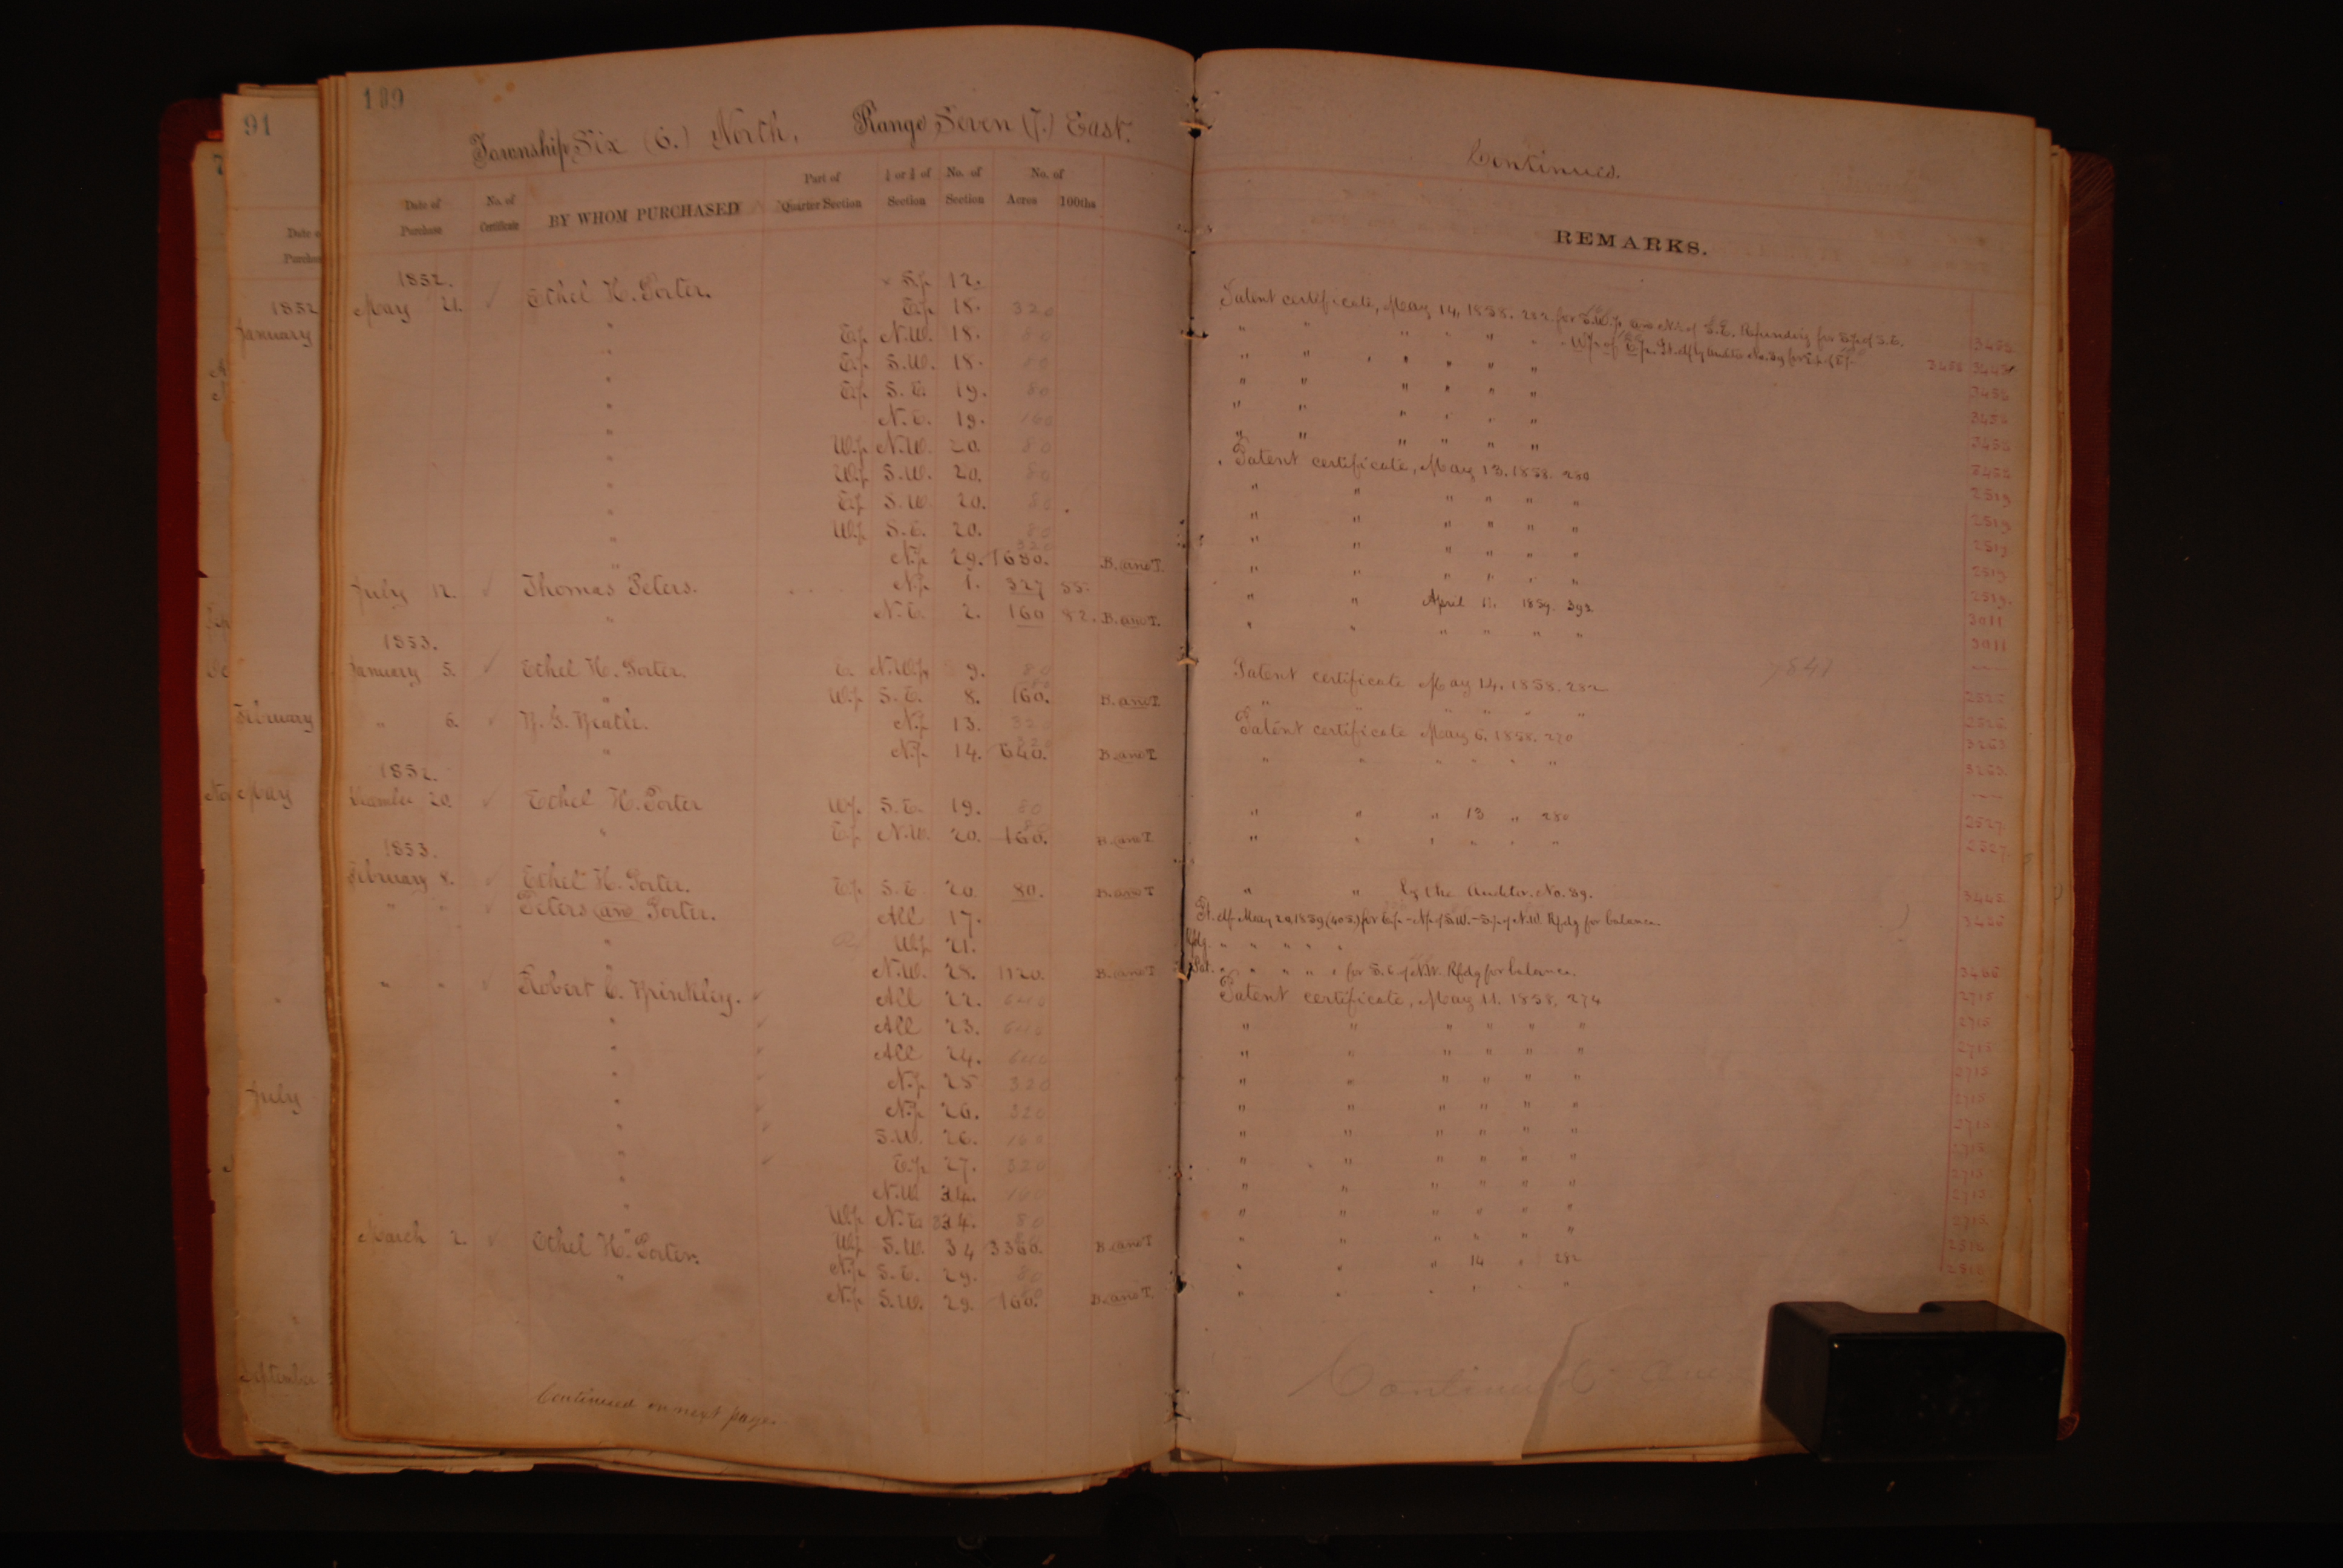 91
109
Township Six (6.) North, Range Seven (7.) East.
Continued.
Date of Purchase
No. of Certificate
BY WHOM PURCHASED
Part of Quarter Section
½ or ¼ of Section
No. of Section
No. of
Acres 100ths
REMARKS.
1852.
May 21. Ethel H. Porter. S.½ 12. Patent certificate, May 14, 1858. 282 for S.W.¼ and N.½ of S.E. Refunding for S.½ of S.E. 3458
" E.½ 18. 320
" E.½ N.W. 18. 80 3458
" E.½ S.W. 18. 80 3458
" E.½ S.E. 19. 80 3458
" N.E. 19. 160 3458
" W.½ N.W. 20. 80 Patent certificate, May 13. 1858. 280 2519
" W.½ S.W. 20. 80 " " " " " " 2519
" E.½ S.W. 20. 80 " " " " " " 2519
" W.½ S.E. 20. 80 " " " " " " 2519
" N.½ 29. 320 1680. B. and T. " " " " " " 2519.
July 12. Thomas Peters. N.½ 1. 327 55. " " April 11. 1859. 392 3011
" N.E. 2. 160 82. B. and T. " " " " " " 3011
1853.
January 5. Ethel H. Porter. E. N.W.½ 9. 80 Patent certificate May 14. 1858. 282 2525
" W.½ S.E. 8. 160. B. and T. " " " " " " 2525
" 6. N.½ 13. 320 Patent certificate May 6. 1858. 270 3263
" N.½ 14. 640. B. and T. " " " " " " 3263.
1852.
December 20. Ethel H. Porter W.½ S.E. 19. 80 " " " 13 " 280 2527.
" E.½ N.W. 20. 160. B. and T. " " " " " " 2527
1853.
February 8. Ethel H. Porter. E.½ S.E. 20. 80. B. and T. " " by the Auditor. No. 39. 3445
" " Peters and Porter. All 17. Pt. ctf. May 24, 1859 (405) for E.½ - N.½ of S.W. - S.½ of N.W. Rfdg for balance. 3466
" W.½ 21. Rfdg. " " " " "
" N.W. 28. 1120. B. and T. Pat. " " " " " for S.E. of N.W. Rfdg for balance. 3466
" " Robert C. Brinkley. All 22. 640 Patent certificate, May 11. 1858. 274 2715
" All 23. 640 " " " " " " 2715
" All 24. 640 " " " " " " 2715
" N.½ 25 320 " " " " " " 2715
" N.½ 26. 320 " " " " " " 2715
" S.W. 26. 160 " " " " " " 2715
" E.½ 27. 320 " " " " " " 2715
" N.W. 34. 160 " " " " " " 2715
" W.½ N.E. 34. 80 " " " " " " 2715
" W.½ S.W. 34 3360. B. and T. " " " " " "
March 2. Ethel H. Porter. N.½ S.E. 29. 80 " " " 14 " 282 2518
" N.½ S.W. 29. 160. B. and T. " " " " " " 2518
Continued on next page.
Continued
1852
January
February
May
July
September